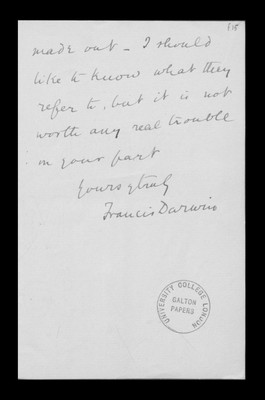 made out – I should
like to know what they
refer to, but it is not
worth any real trouble
on your part
Yours truly
Francis Darwin
UNIVERSITY COLLEGE LONDON
GALTON
PAPERS